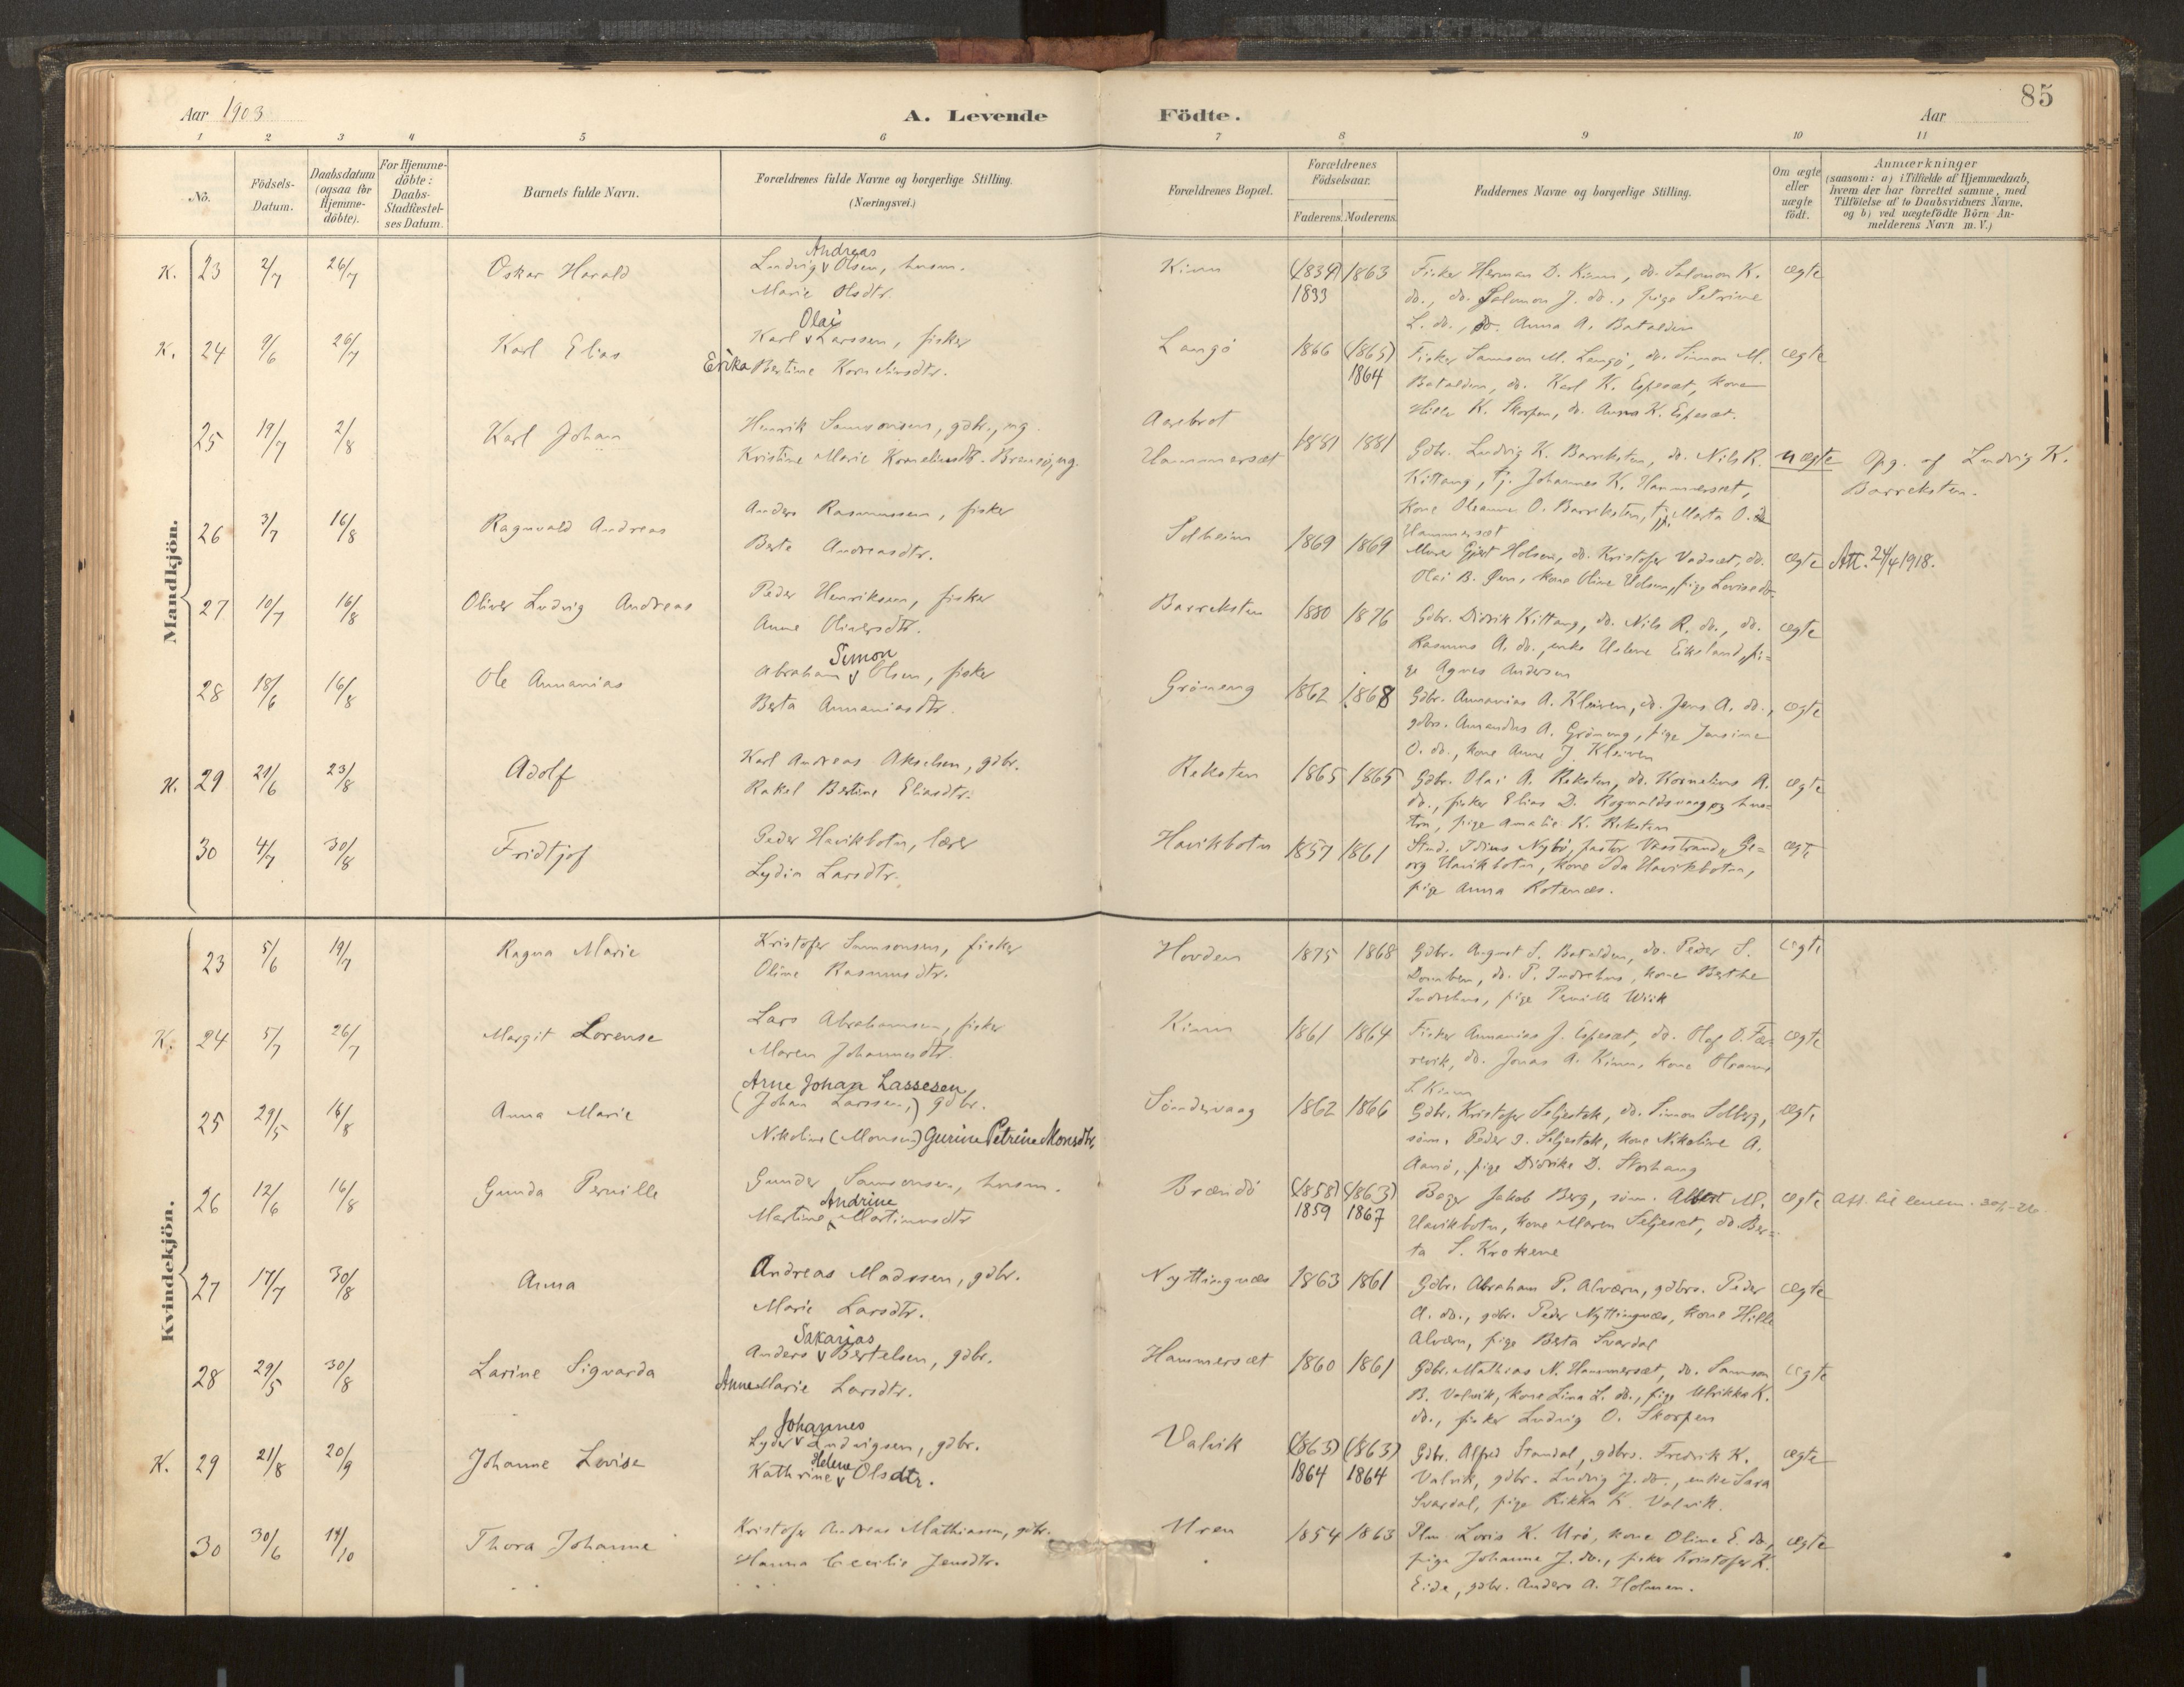 85
Aar 1903
A. Levende Födte.
Aar
1 2 3 4 5 6 7 8 9 10 11
No.
Födsels-Datum.
Daabsdatum (ogsaa for Hjemme-döbte).
For Hjemme-döbte: Daabs-Stadfæstel-ses Datum.
Barnets fulde Navn.
Forældrenes fulde Navne og borgerlige Stilling.
(Næringsvei.)
Forældrenes Bopæl.
Forældrenes Födselsaar.
Faderens. Moderens.
Faddernes Navne og borgerlige Stilling.
Om ægte eller uægte födt.
Anmærkninger
(saasom: a) i Tilfælde af Hjemmedaab, hvem der har forrettet samme, med Tilföielse af to Daabsvidners Navne, og b) ved uægtefödte Börn An-melderens Navn m. V.)
Mandkjön.
K. 23 2/7 26/7 Oskar Harald
Andreas
Ludvig v Olsen, husm.
Marie Olsdtr.
Kinn (1834) 1863
1833
Fisker Herman D. Kinn, do. Salomon K.
do., do. Salomon J. do., pige Petrine
L. do., do. Anna A. Batalden
ægte
K. 24 9/6 26/7 Karl Elias
Olai
Karl v Larssen, fisker
Erika Bertine Kornelinsdtr.
Langö 1866 (1865)
1864
Fisker Samson M. Langö, do. Simon M.
Batalden, do. Karl K. Espeset, kone
Hille K. Skorpen, do. Anna K. Espeset.
ægte
25 19/7 2/8 Karl Johan
Henrik Samsonsen, gdbr., ug.
Kristine Marie Korneliusdtr. Bremsö, ug.
Aasebrot
Hammersæt
1881 1881
Gdbr. Ludvig K. Barreksten, do. Nils R.
Kittang, tj. Johannes K. Hammersæt,
kone Oleanna O. Barreksten, tj. Marta O.
Hammersæt
uægte
Opg. af Ludvig K.
Barreksten.
26 3/7 16/8 Ragnvald Andreas
Anders Rasmussen, fisker
Berte Andreasdtr.
Solheim 1869 1869
Murer Gjert Holsen, do. Kristofer Vadset, do.
Olai B. Øen, kone Oline Holsen, pige Lovise do.
ægte
Att. 24/4 1918.
27 10/7 16/8 Oliver Ludvig Andreas
Peder Henriksen, fisker
Anne Oliversdtr.
Barreksten 1880 1876
Gdbr. Didrik Kittang, do. Nils R. do., do.
Rasmus A. do., enke Helene Eikeland, pi-
ge Agnes Andersen
ægte
28 18/6 16/8 Ole Annanias
Simon
Abraham v Olsen, fisker
Berta Annaniasdtr.
Gröneng 1862 1868
Gdbr. Annanias A. Kleiven, do. Jens A. do.,
gdbrs. Amandus A. Gröneng, pige Jensine
O. do., kone Anne J. Kleiven
ægte
K. 29 21/6 23/8 Adolf
Karl Andreas Akselsen, gdbr.
Rakel Bertine Eliasdtr.
Reksten 1865 1865
Gdbr. Olai A. Reksten, do. Kornelius A.
do., fisker Elias D. Rognaldsvaag og hus-
tru, pige Amalie K. Reksten
ægte
30 4/7 30/8 Fridtjof
Peder Havikbotn, lærer
Lydia Larsdtr.
Havikbotn 1857 1861
Stud. Idius Nybö, pastor Vaastrand, Ge-
org Havikbotn, kone Ida Havikbotn,
pige Anna Rotenæs.
ægte
Kvindekjön.
23 5/6 19/7 Ragna Marie
Kristofer Samsonsen, fisker
Oline Rasmusdtr.
Hovden 1875 1868
Gdbr. August S. Batalden, do. Peder S.
Domben, do. P. Indrehus, kone Berthe
Indrehus, pige Pernille Wiik
ægte
K. 24 5/7 26/7 Margit Lorense
Lars Abrahamsen, fisker
Maren Johannesdtr.
Kinn 1861 1864
Fisker Annanias J. Espeset, do. Olaf O. Fær-
revik, do. Jonas A. Kinn, kone Oleanna
S. Kinn
ægte
25 29/5 16/8 Anna Marie
Arne Johan Lassesen,
(Johan Larssen,) gdbr.
Nikoline (Monsen) Gurine Petrine Monsdtr.
Söndervaag 1862 1866
Gdbr. Kristofer Seljestok, do. Simon Solberg,
sönn. Peder I. Seljestok, kone Nikoline A.
Aanö, pige Didrike D. Storhaug
ægte
26 12/6 16/8 Gunda Pernille
Gunder Samsonsen, husm.
Andrine
Martine v Martinusdtr
Brandö (1858) (1863)
1859 1867
Bager Jakob Berg, sönn. Albert M.
Havikbotn, kone Maren Seljeset, do. Ber-
ta S. Krokene
ægte
27 17/7 30/8 Anna
Andreas Madssen, gdbr.
Marie Larsdtr.
Nyttingnæs 1863 1861
Gdbr. Abraham P. Alværn, gdbrs. Peder
A. do., gdbr. Peder Nyttingnæs, kone Hille
Alværn, pige Berta Svardal
ægte
28 29/5 30/8 Larine Sigvarda
Sakarias
Anders v Bertelsen, gdbr.
Anne Marie Larsdtr.
Hammersæt 1860 1861
Gdbr. Mathias N. Hammersæt, do. Samson
B. Valvik, kone Lina L. do., pige Ulrikka K.
do., fisker Ludvig O. Skorpen
ægte
K. 29 21/8 20/9 Johanne Lovise
Johannes
Lyder v Ludvigsen, gdbr.
Helene
Kathrine v Olsdtr.
Valvik (1863) (1863)
1864 1864
Gdbr. Alfred Standal, gdbrs. Fredrik K.
Valvik, gdbr. Ludvig J. do., enke Sara
Svardal, pige Rikka K. Valvik.
ægte
30 30/6 14/10 Thora Johanne
Kristofer Andreas Mathiassen, gdbr.
Hanna Cecilie Jensdtr.
Uren 1854 1863
Plm. Loris K. Urö, kone Oline E. do.,
pige Johanna J. do., fisker Kristofer K.
Eide, gdbr. Anders A. Holmen.
ægte